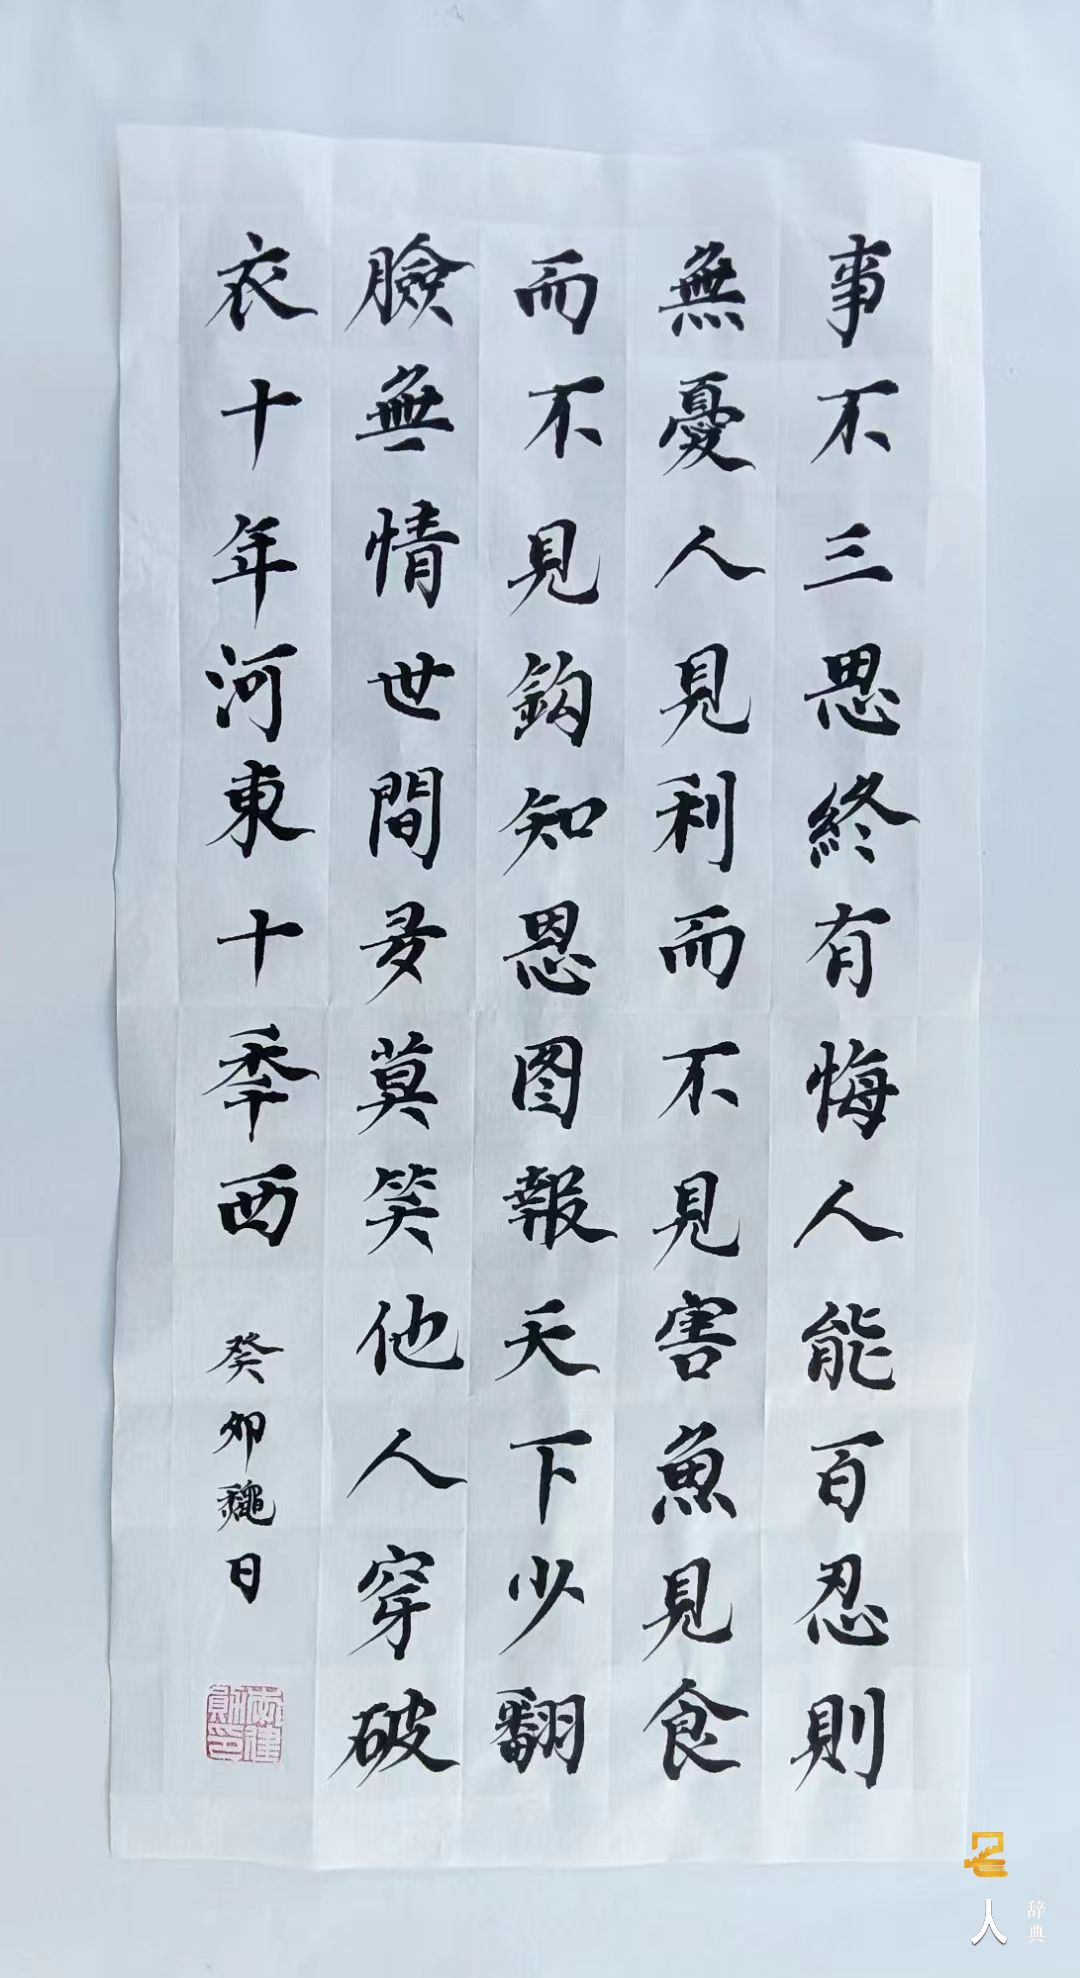 事不三思終有悔人能百忍則
無憂人見利而不見害魚見食
而不見鈎知恩图報天下少翻
臉無情世間多莫笑他人穿破
衣十年河東十秊西
癸卯龝日
人
辞典